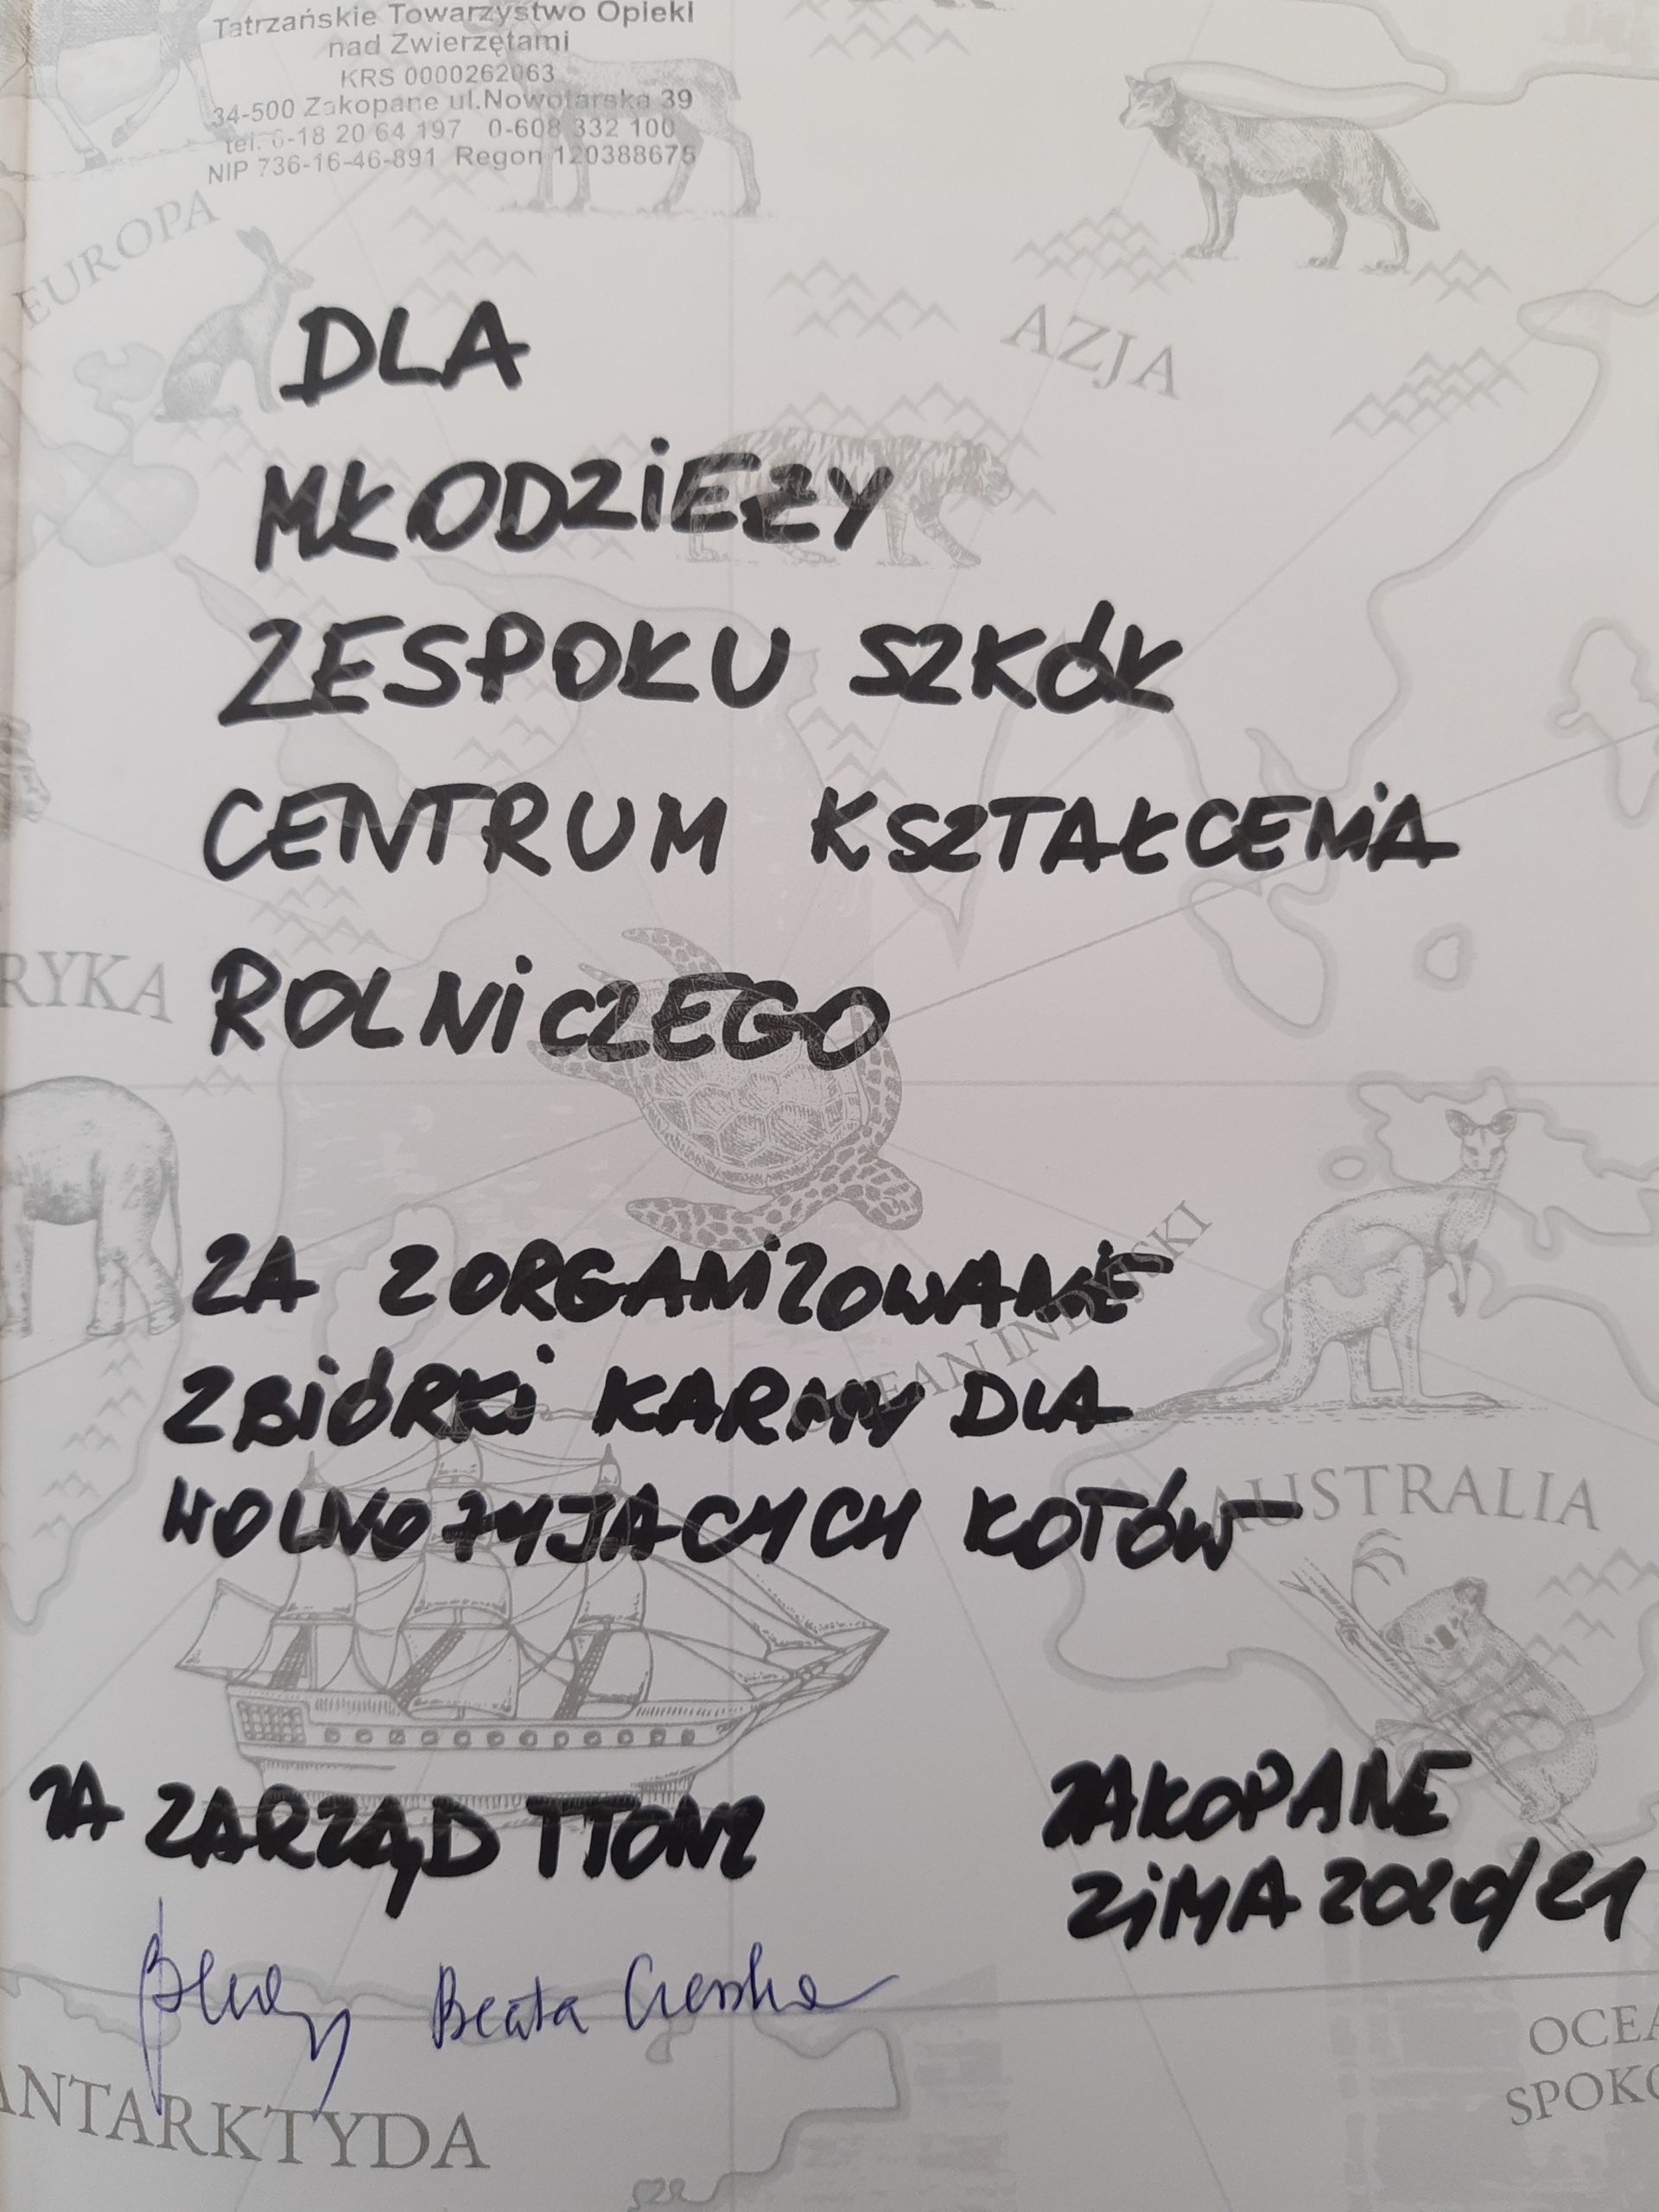 Tatrzańskie Towarzystwo Opieki
nad Zwierzętami
KRS 0000262063
34-500 Zakopane ul.Nowotarska 39
tel. 0-18 20 64 197 0-608 332 100
NIP 736-16-46-891 Regon 120388675
EUROPA
AZJA
DLA
MŁODZIEŻY
ZESPOŁU SZKÓŁ
CENTRUM KSZTAŁCENIA
RYKA
ROLNICZEGO
ZA ZORGANIZOWANIE
OCEAN INDYJSKI
ZBIÓRKI KARMY DLA
WOLNOŻYJĄCYCH KOTÓW
AUSTRALIA
ZA ZARZĄD TTONZ
ZAKOPANE
ZIMA 2020/21
Beata
ANTARKTYDA
OCEA
SPOKO